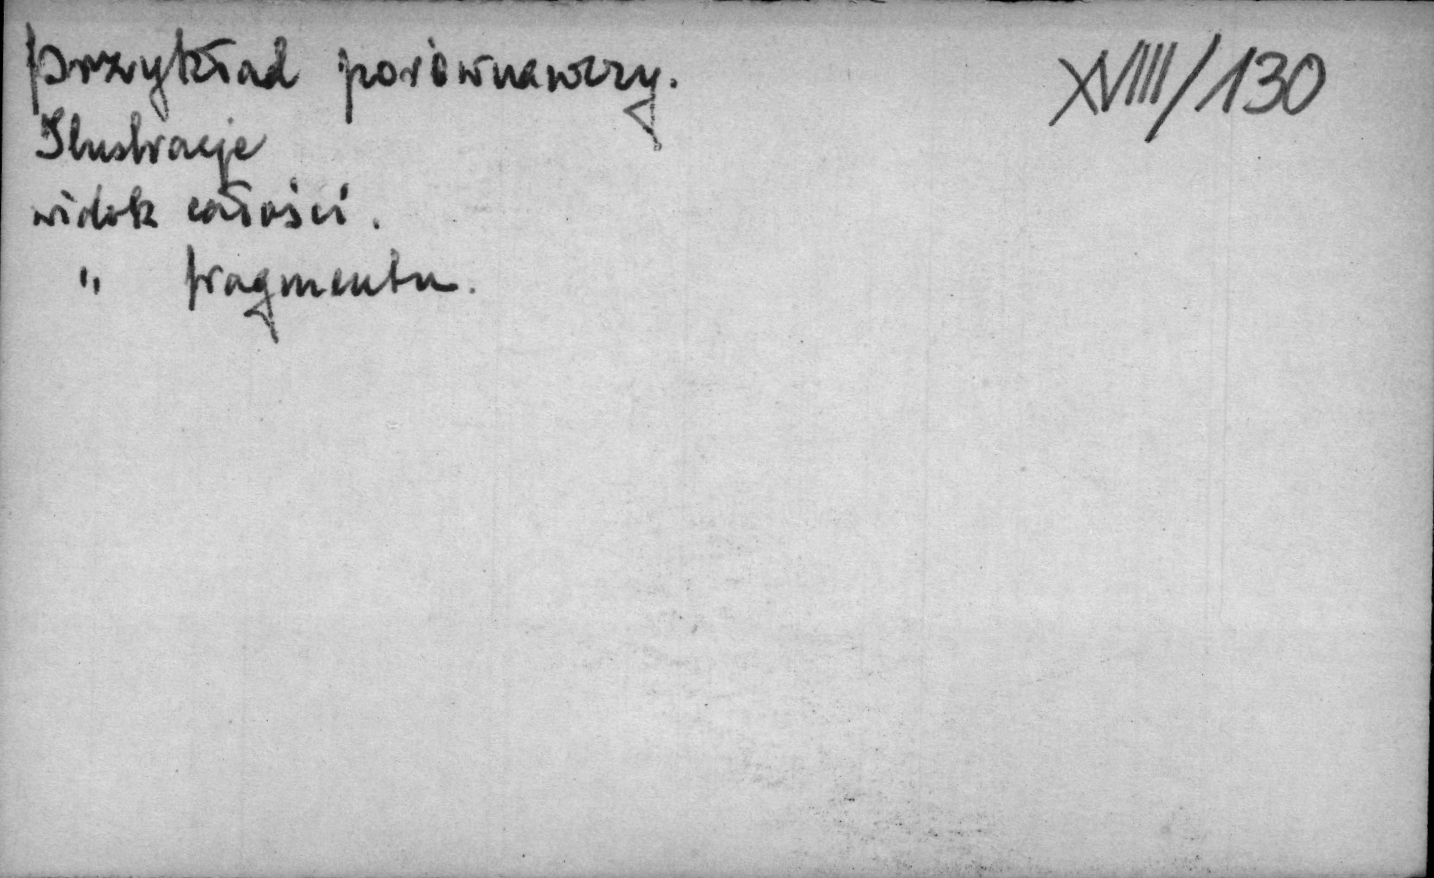 przykład porównawczy.
XVIIII/130
Ilustracje
widok całości.
" fragmentu.